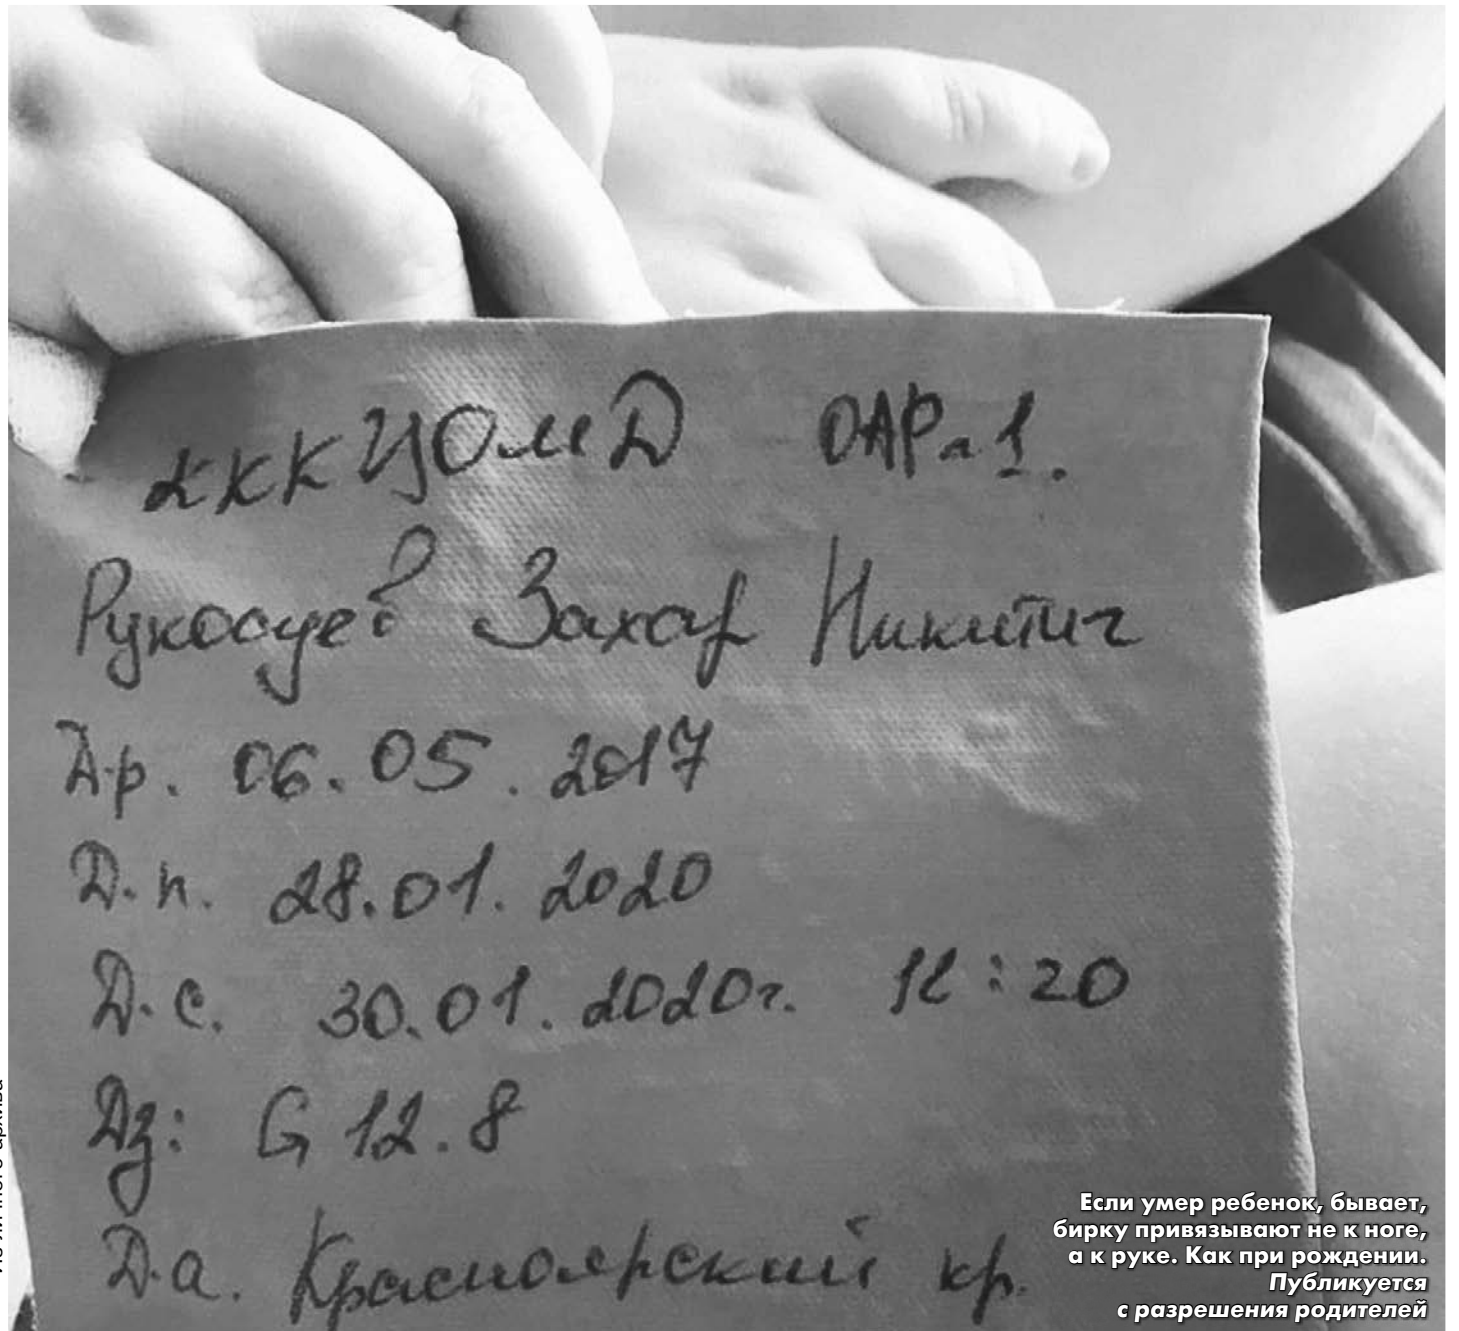 КККЦОМД ОАР-1.
Рукосуев Захар Никитич
Д.р. 06.05.2017
Д.п. 28.01.2020
Д.с. 30.01.2020г. 12:20
Дз: G 12.8
Д.а. Красноярский кр.
Если умер ребенок, бывает,
бирку привязывают не к ноге,
а к руке. Как при рождении.
Публикуется
с разрешения родителей